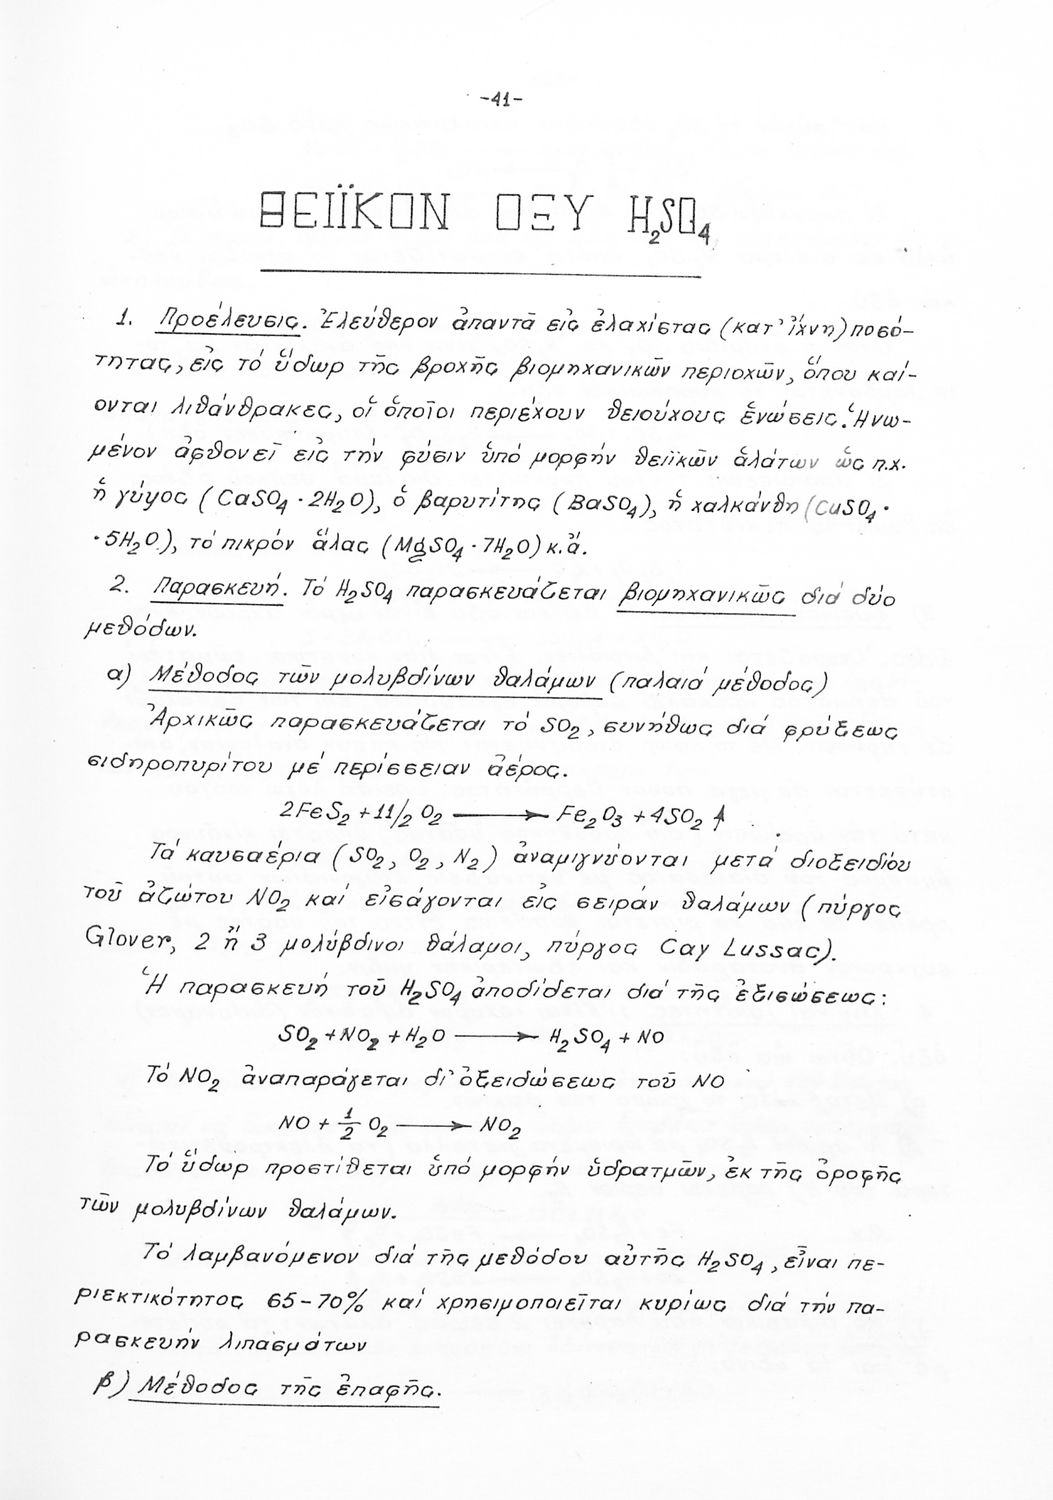 -41-
ΘΕΙΪΚΟΝ ΟΞΥ H₂SO₄
1. Προέλευσις. Ἐλεύθερον ἀπαντᾶ εἰς ἐλαχίστας (κατ' ἴχνη) ποσό-
τητας, εἰς τό ὕδωρ τῆς βροχῆς βιομηχανικῶν περιοχῶν, ὅπου καί-
ονται λιθάνθρακες, οἱ ὁποῖοι περιέχουν θειούχους ἑνώσεις. Ἡνω-
μένον ἀφθονεῖ εἰς τήν φύσιν ὑπό μορφήν θειϊκῶν ἁλάτων ὡς π.χ.
ἡ γύψος (CaSO₄ · 2H₂O), ὁ βαρυτίτης (BaSO₄), ἡ χαλκάνθη (CuSO₄ ·
· 5H₂O), τό πικρόν ἅλας (MgSO₄ · 7H₂O) κ.ἄ.
2. Παρασκευή. Τό H₂SO₄ παρασκευάζεται βιομηχανικῶς διά δύο
μεθόδων.
α) Μέθοδος τῶν μολυβδίνων θαλάμων (παλαιά μέθοδος)
Ἀρχικῶς παρασκευάζεται τό SO₂, συνήθως διά φρύξεως
σιδηροπυρίτου μέ περίσσειαν ἀέρος.
2FeS₂ + 11/2 O₂ ⟶ Fe₂O₃ + 4SO₂ ↑
Τά καυσαέρια (SO₂, O₂, N₂) ἀναμιγνύονται μετά διοξειδίου
τοῦ ἀζώτου NO₂ καί εἰσάγονται εἰς σειράν θαλάμων (πύργος
Glover, 2 ἤ 3 μολύβδινοι θάλαμοι, πύργος Cay Lussac).
Ἡ παρασκευή τοῦ H₂SO₄ ἀποδίδεται διά τῆς ἐξισώσεως:
SO₂ + NO₂ + H₂O ⟶ H₂SO₄ + NO
Τό NO₂ ἀναπαράγεται δι' ὀξειδώσεως τοῦ NO
NO + 1/2 O₂ ⟶ NO₂
Τό ὕδωρ προστίθεται ὑπό μορφήν ὑδρατμῶν, ἐκ τῆς ὀροφῆς
τῶν μολυβδίνων θαλάμων.
Τό λαμβανόμενον διά τῆς μεθόδου αὐτῆς H₂SO₄, εἶναι πε-
ριεκτικότητος 65-70% καί χρησιμοποιεῖται κυρίως διά τήν πα-
ρασκευήν λιπασμάτων
β) Μέθοδος τῆς ἐπαφῆς.